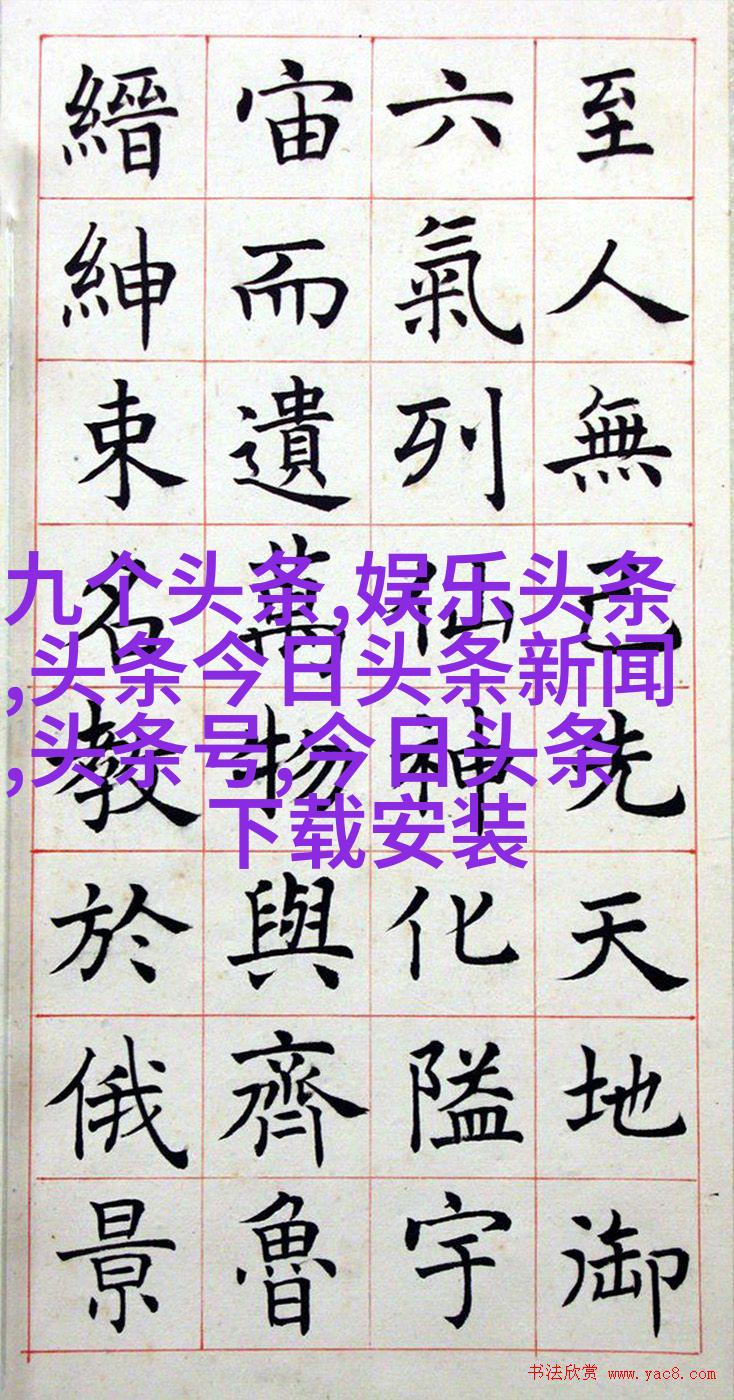 至人無己先天地御
六氣列仙神化隘宇
宙而遺萬物與齊魯
縉紳束名教於俄景
九个头条,娱乐头条
,头条今日头条新闻
,头条号,今日头条
下载安装
书法欣赏 www.yac8.com